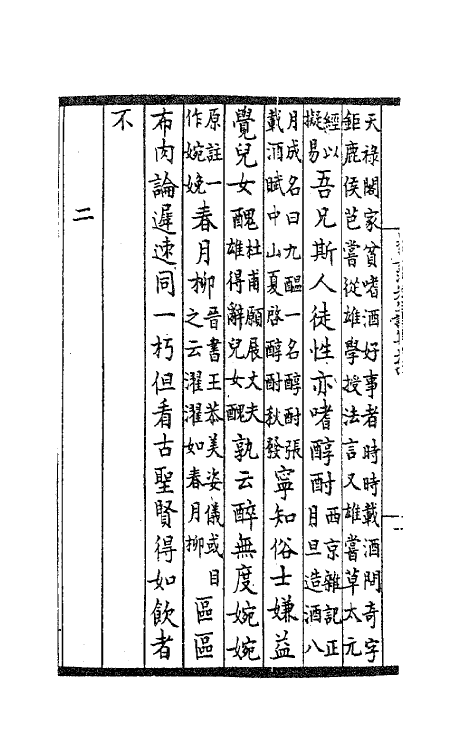 天祿閣家貧嗜酒好事者時時載酒問奇字
鉅鹿侯芭嘗從雄學授法言又雄嘗草太元
經以擬易吾兄斯人徒性亦嗜醇酎西京雜記正月旦造酒八
月成名曰九醞一名醇酎張載酒賦中山夏啓醇酎秋發寧知俗士嫌益
覺兒女醜杜甫願展丈夫雄得辭兒女醜孰云醉無度婉婉
原註一作婉娩春月柳晉書王恭美姿儀或目之云濯濯如春月柳區區
布肉論遲速同一朽但看古聖賢得如飲者
不
二